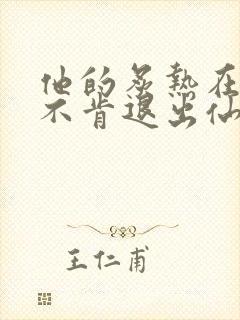 他的炙熱在
不肯退出仙
王仁甫